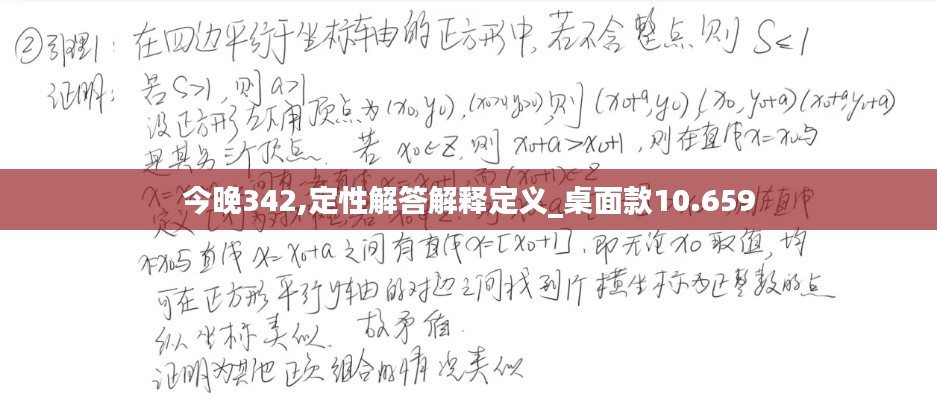 ②引理1: 在四边平行于坐标轴的正方形中,若不含整点则 S≤1
证明: 若S>1,则a>1
设正方形左下角顶点为(x₀,y₀),(x₀>0,y₀>0),则(x₀+a,y₀),(x₀,y₀+a)(x₀+a,y₀+a)
是其另三个顶点. 若 x₀∈Z,则 x₀+a>x₀+1,则在直线x=x₀与
今晚342,定性解答解释定义_桌面款10.659
x=x₀与直线 x=x₀+a 之间有直线x=[x₀+1],即无论x₀取值,均
可在正方形平行y轴的对边之间找到1个横坐标为正整数的点
纵坐标类似. 故矛盾.
证明为其他正负组合的情况类似